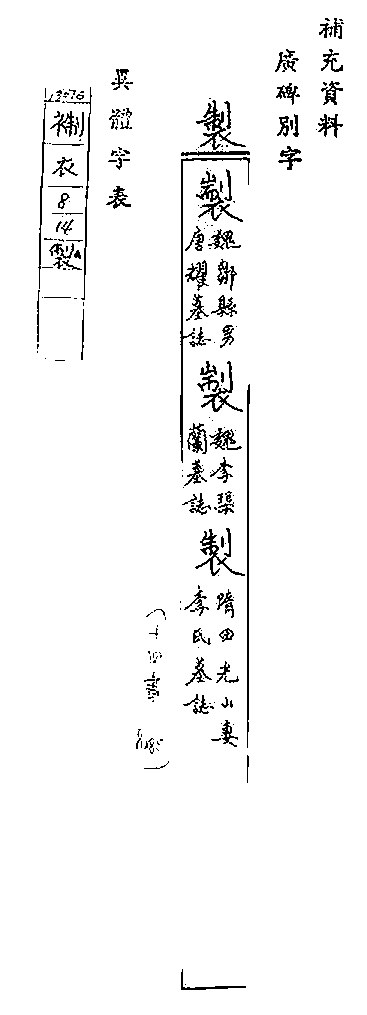 補充資料
廣碑別字
製
製
魏鄒縣男
唐耀墓誌
製
魏李榘
蘭墓誌
製
隋田光山妻
李氏墓誌
異體字表
衣
8
14
製